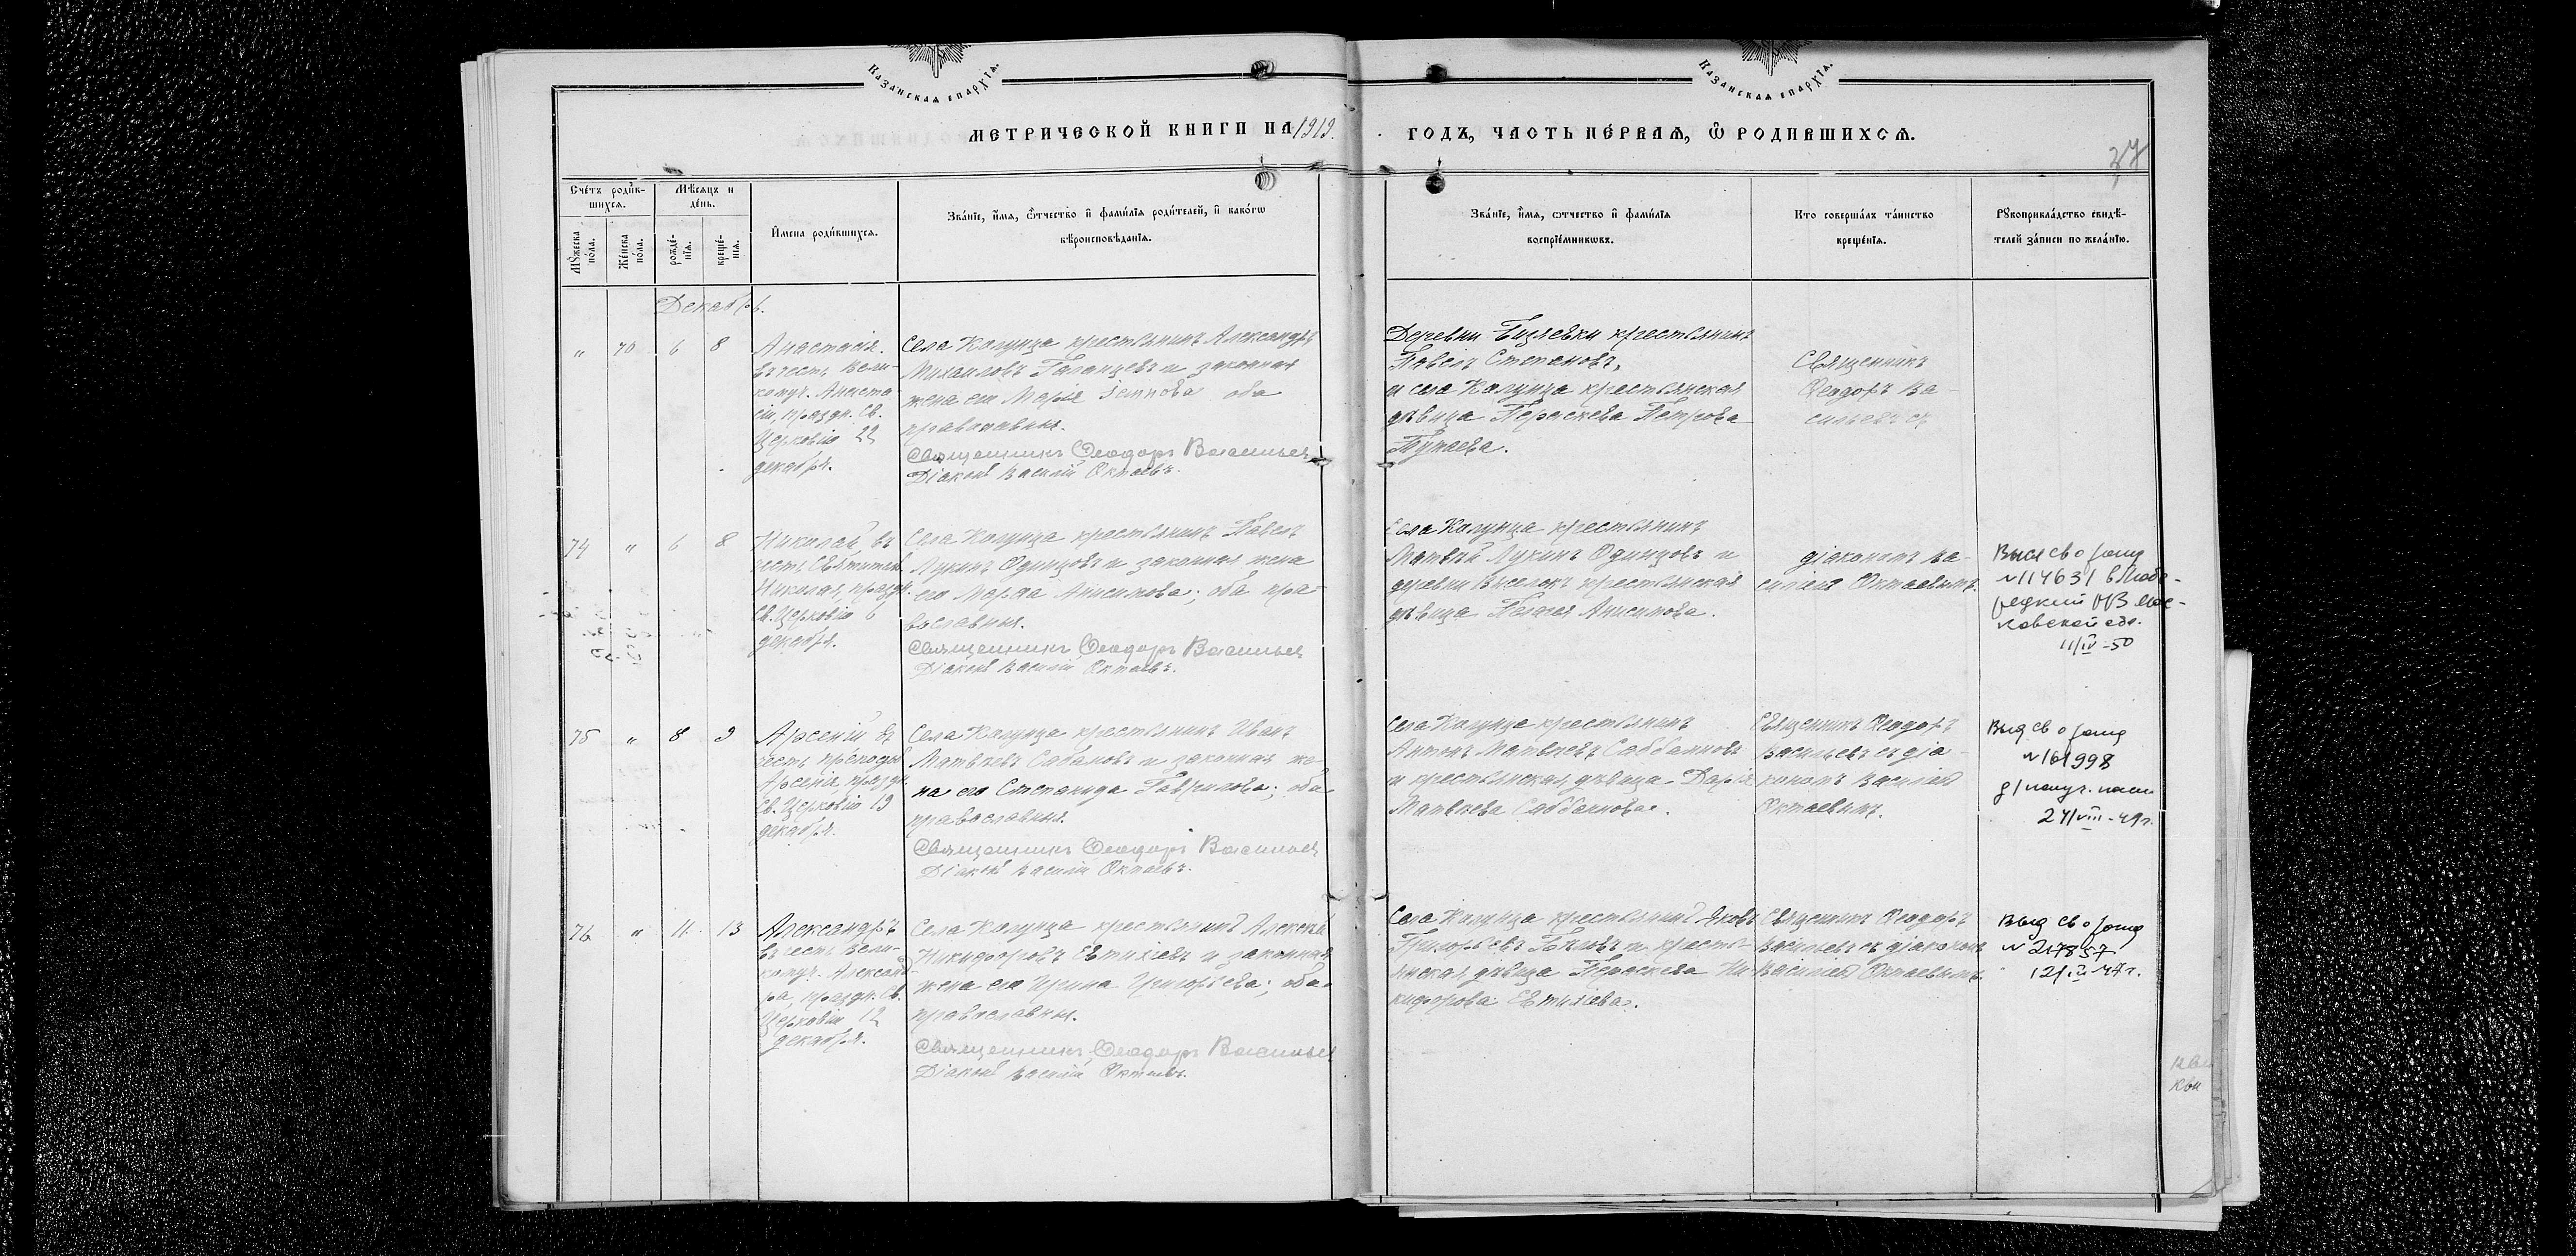 Казанскаѧ епархїѧ.
Казанскаѧ епархїѧ.
МЕТРИЧЕСКОЙ КНИГИ НА 1919.
ГОДЪ, ЧАСТЬ ПЕ́РВАѦ, Ѿ РОДИВШИХСѦ.
37
Сче́тъ роди́в-
шихсѧ.
Мѣсѧцъ и
де́нь.
Мꙋ́жеска
по́ла.
Же́нска
по́ла.
рожде́-
нїѧ.
креще́-
нїѧ.
И҆мена роди́вшихсѧ.
Зва́нїе, и҆́мѧ, ѻ҆́тчество и҆ фами́лїѧ роди́телей, и҆ како́гѡ
вѣроисповѣ́данїѧ.
Зва́нїе, и҆́мѧ, ѻтчество и҆ фами́лїѧ
воспрїе́мникѡвъ.
Кто соверша́лъ та́инство
креще́нїѧ.
Рꙋкоприкла́дство свидѣ́-
телей за́писи по жела́нїю.
Декабрь.
" 70 6 8
Анастасія.
въ честь Вели-
комуч. Анаста
сіи, праздн. Св.
Церковію 22
декабря.
Села крестьянинъ Александръ
Михаиловъ и законная
жена его Марія оба
православные.
Священникъ Ѳеодоръ Васильевъ
Діаконъ Василій Октаевъ.
Деревни крестьянинъ
Павелъ Степановъ,
и села крестьянская
дѣвица Параскева Петрова
Священникъ
Ѳеодоръ Ва-
сильевъ съ
74 " 6 8
Николай, въ
честь Святителя
Николая, праздн.
Св. Церковію 6
декабря.
Села крестьянинъ Павелъ
Лукинъ Одинцовъ и законная жена
его Марѳа Анисимова; оба пра-
вославные.
Священникъ Ѳеодоръ Васильевъ
Діаконъ Василій Октаевъ.
Села крестьянинъ
Матвѣй Лукинъ Одинцовъ и
деревни Выселокъ крестьянская
дѣвица Пелагея Анисимова.
діакономъ Ва-
силіемъ Октаевымъ.
Выд св о рожд
№ 114631 в Любе-
рецкий РВ Мос-
ковской обл.
11/IV-50
75 " 8 9
Арсеній въ
честь преподоб.
Арсенія, праздн.
Св. Церковію 19
декабря.
Села крестьянинъ Иванъ
Матвѣевъ и законная же-
на его Степанида Гаврилова; оба
православные.
Священникъ Ѳеодоръ Васильевъ
Діаконъ Василій Октаевъ.
Села крестьянинъ
Антонъ Матвѣевъ
и крестьянская дѣвица Дарія
Матвѣева
Священникъ Ѳеодоръ
Васильевъ съ діа-
кономъ Василіемъ
Октаевымъ.
Выд св о рожд
№ 161998
д/получ. пасп
24/VIII-49г.
76 " 11 13
Александръ
въ честь Вели-
комуч. Александ-
ра, праздн. Св.
Церковію 12
декабря.
Села крестьянинъ Алексѣй
Никифоровъ Евтихіевъ и законная
жена его Ирина Григорьева; оба
православные.
Священникъ Ѳеодоръ Васильевъ
Діаконъ Василій Октаевъ.
Села крестьянинъ Яковъ
Григорьевъ и кресть-
янская дѣвица Параскева Ни-
кифорова Евтихіева.
Священникъ Ѳеодоръ
Васильевъ съ діакономъ
Василіемъ Октаевымъ.
Выд св о рожд
№ 217857
12/IV 47г.